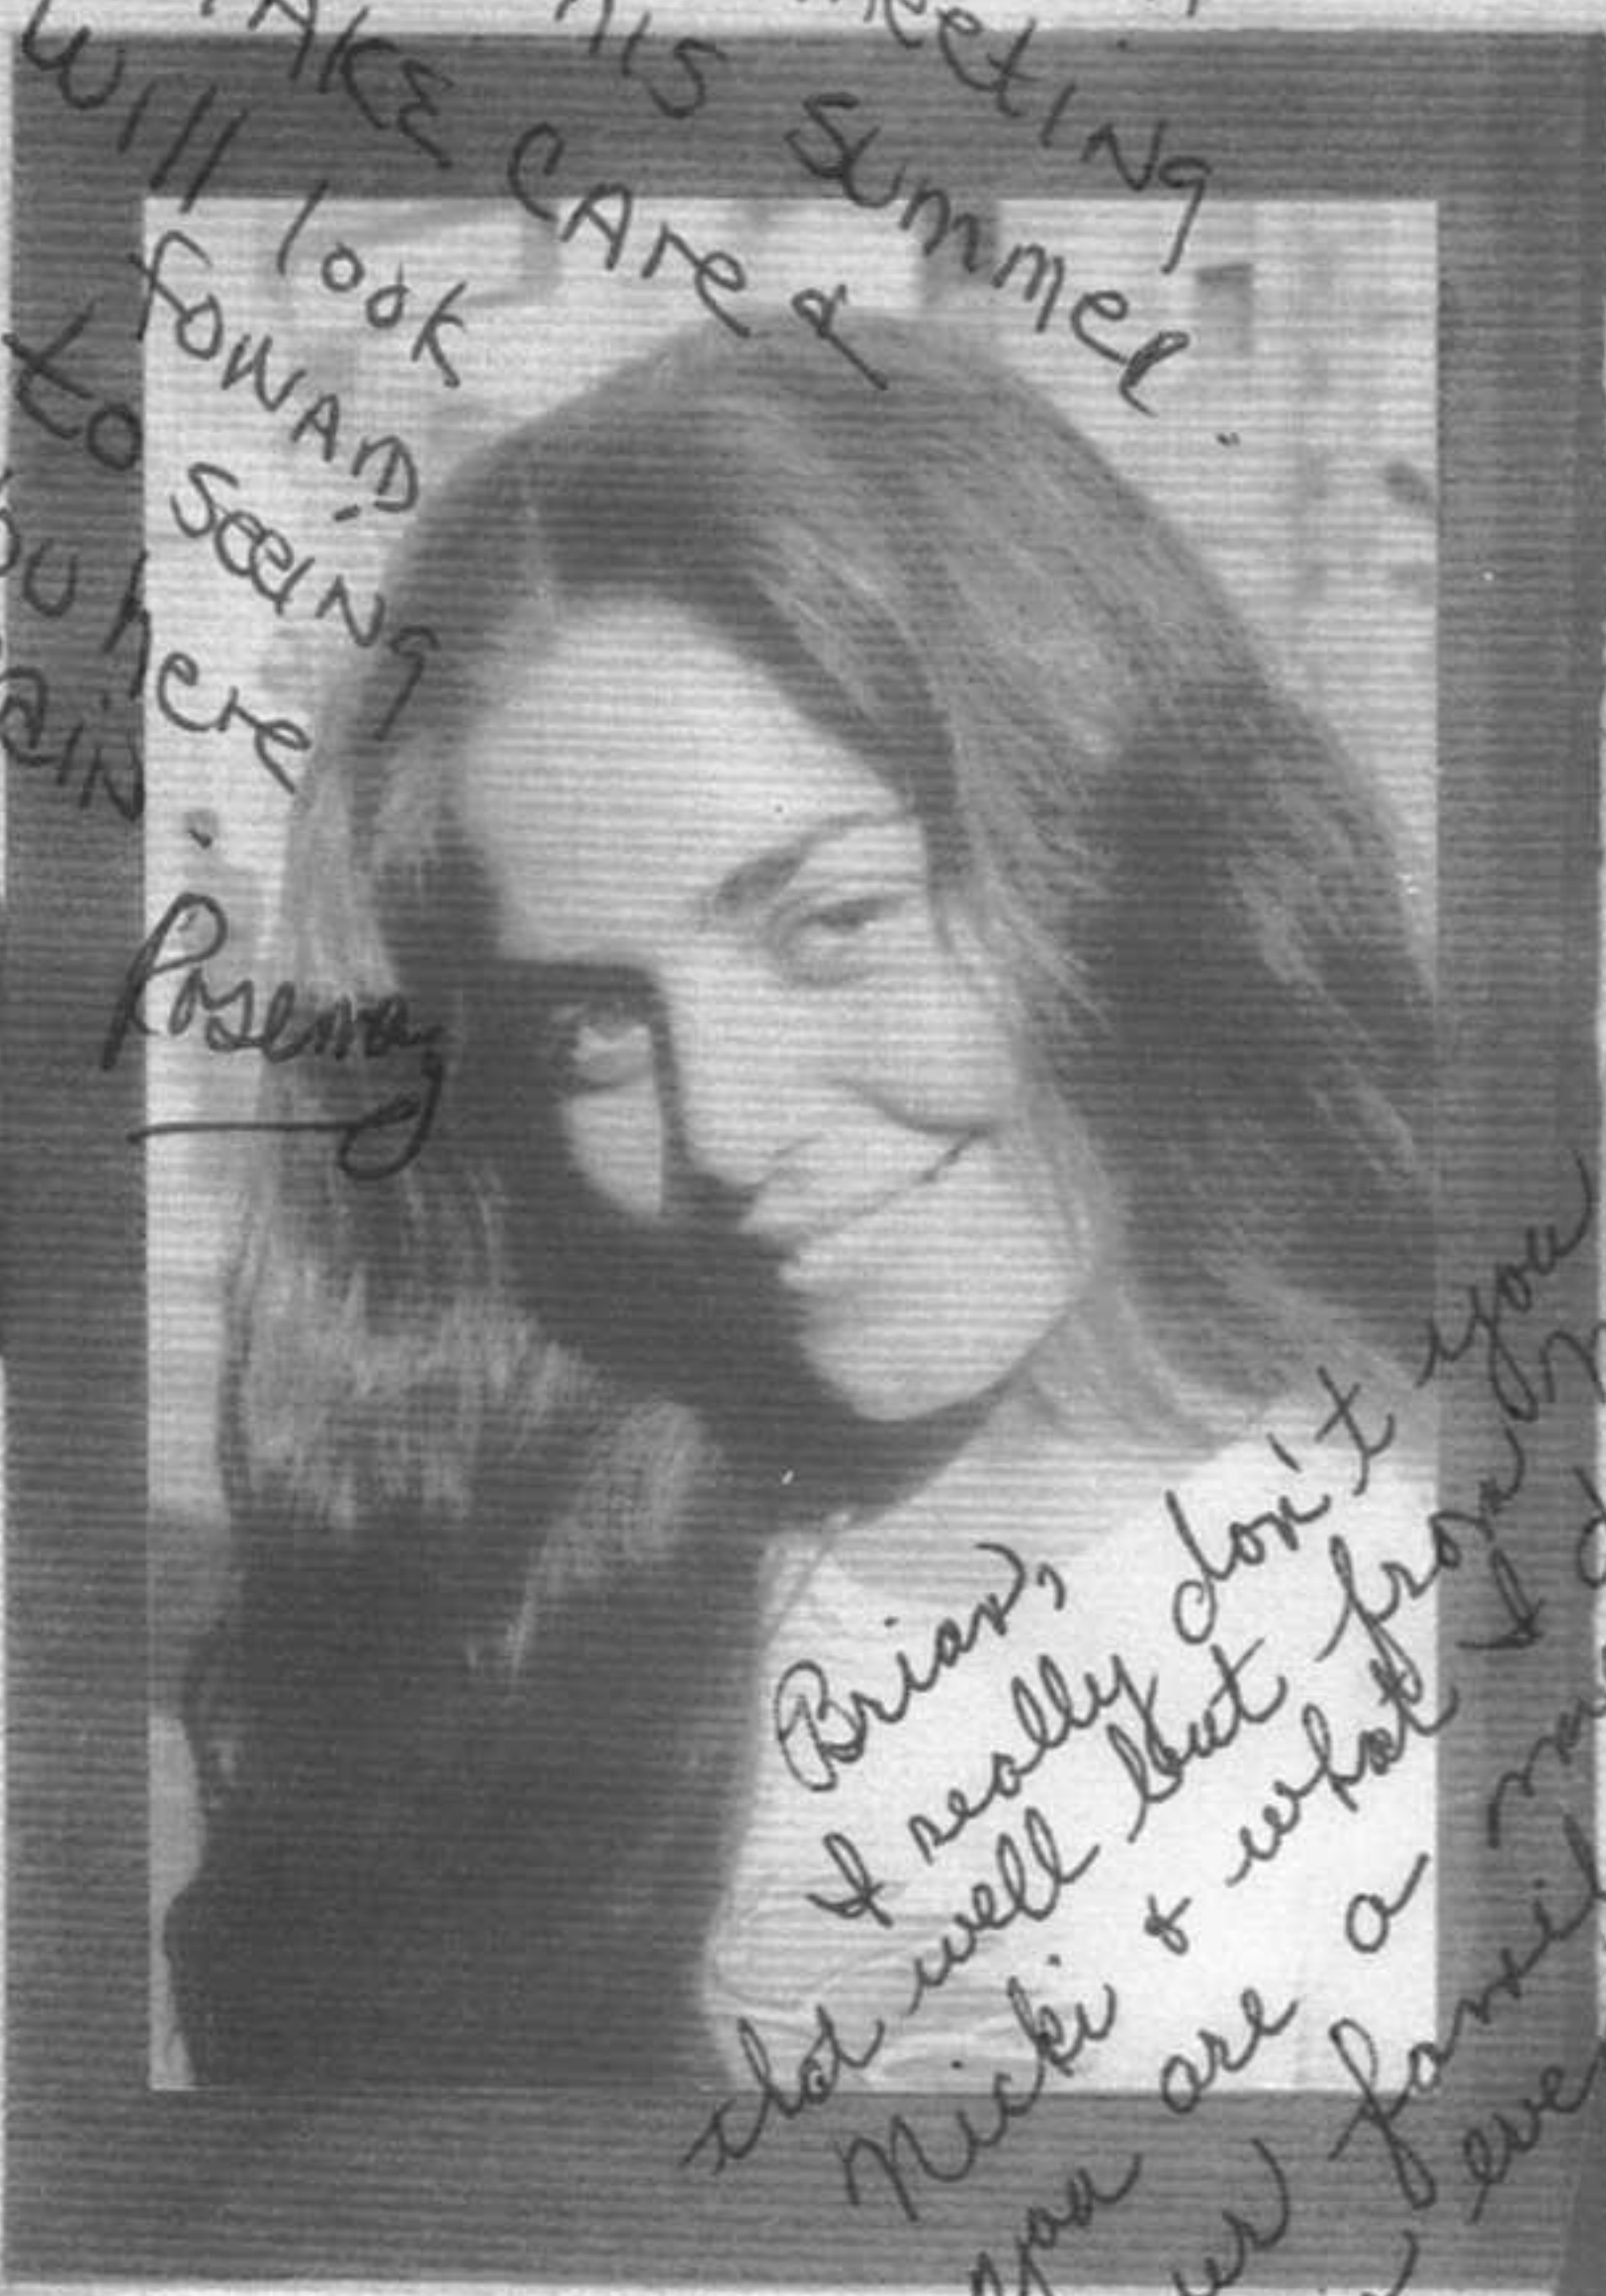 meeting
his summer.
TAKE CAre &
will look
foward
to seeing
ou here
ain.
Rosemary
Brian,
I really don't you
that well but from
Nicki & what I d
you are a
ur famil
eve